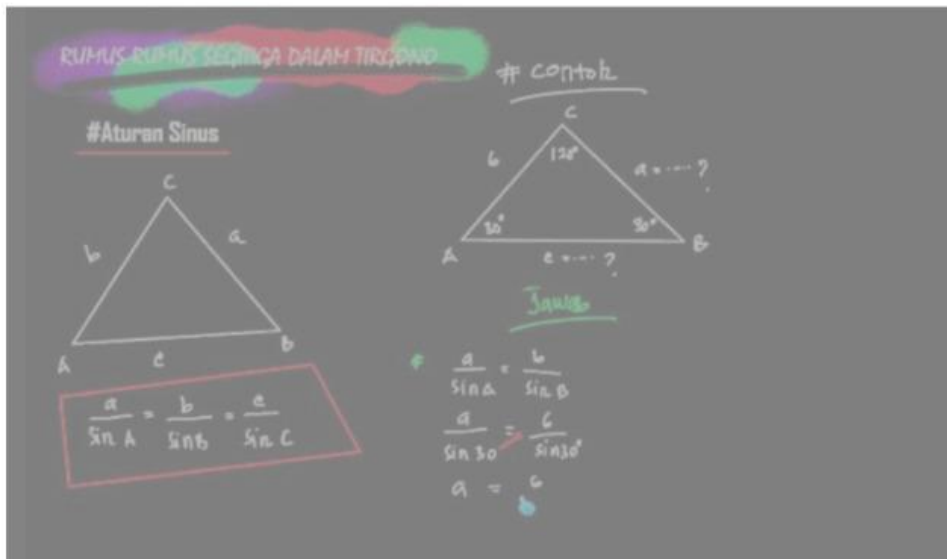 RUMUS-RUMUS SEGITIGA DALAM TIRGONO
#Aturan Sinus
C
b
a
A
B
c
a/sin A = b/sin B = c/sin C
# Contoh
C
6
120°
a = ....?
30°
30°
A
B
c = ....?
Jawab
* a/sin A = b/sin B
a/sin 30 = 6/sin 30°
a = 6